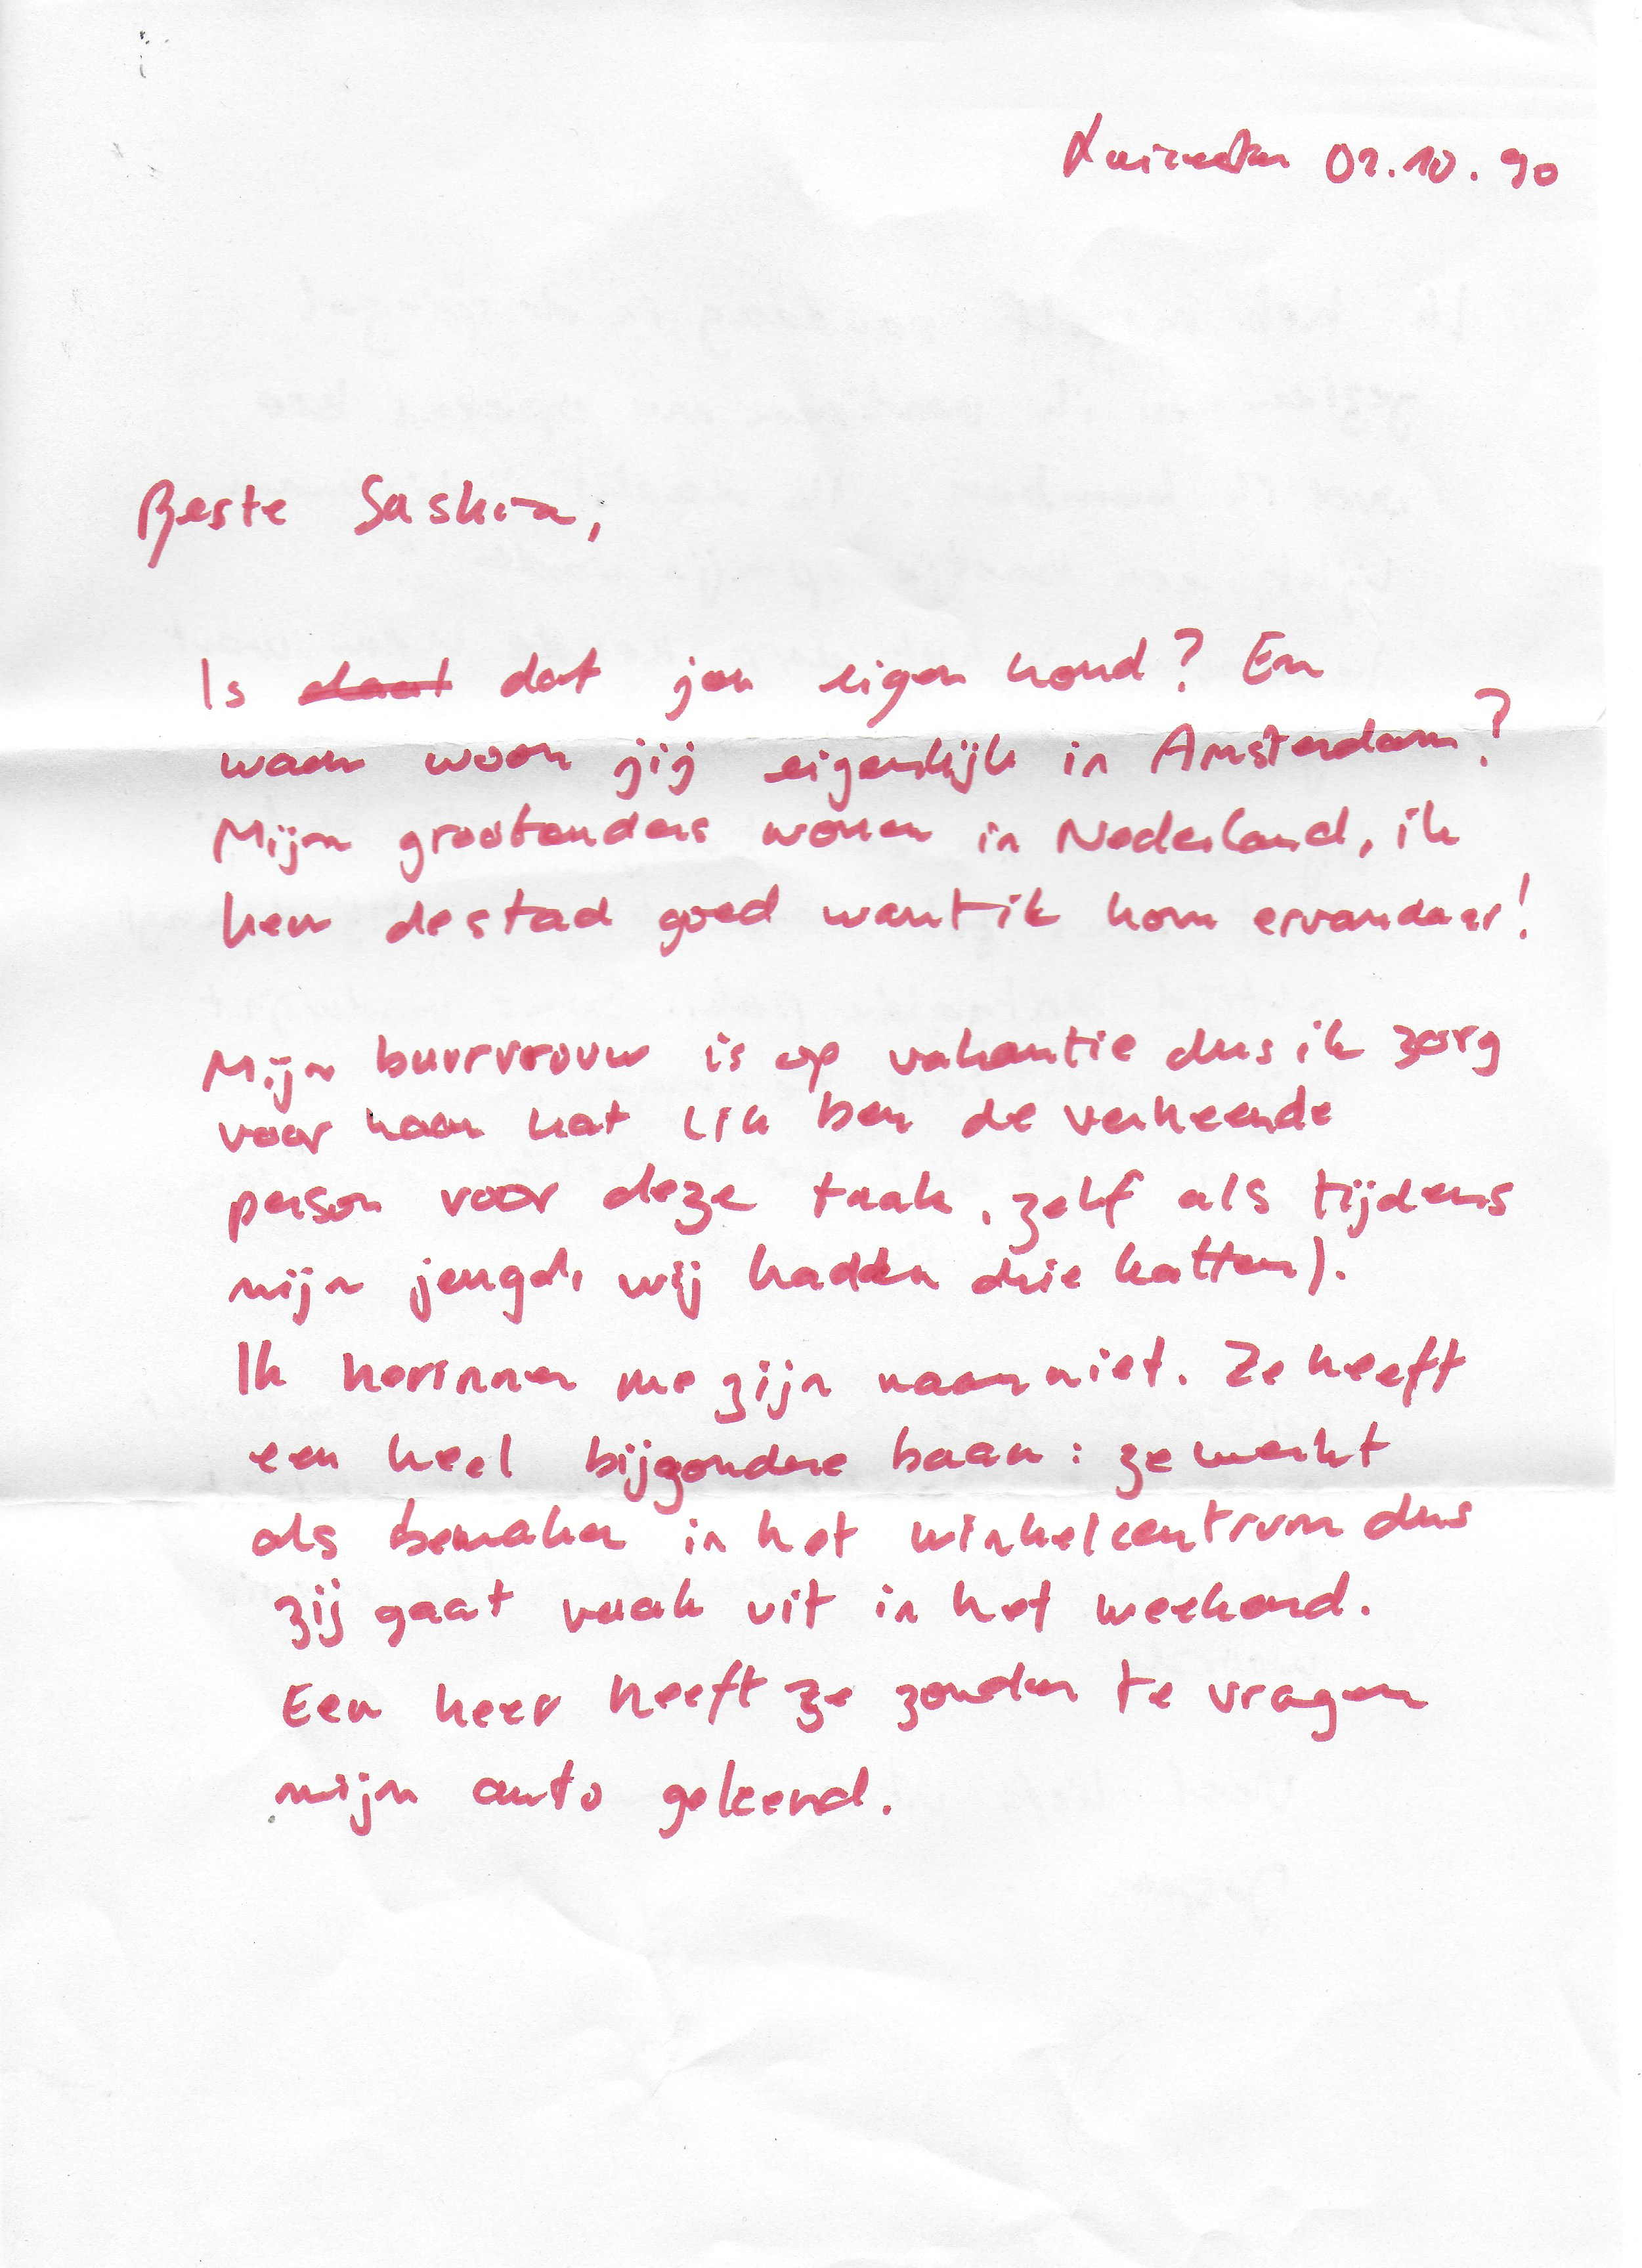 02.10.90
Beste Saskia,
Is daat dat jou eigen hond? En
waar woon jij eigenlijk in Amsterdam?
Mijn grootouders wonen in Nederland, ik
ken de stad goed want ik kom ervandaar!
Mijn buurvrouw is op vakantie dus ik zorg
voor haar kat (ik ben de verkeerde
person voor deze taak, zelf als tijdens
mijn jeugd, wij hadden drie katten).
Ik herinner me zijn naam niet. Ze heeft
een heel bijzondere baan: ze werkt
als bewaker in het winkelcentrum dus
zij gaat vaak uit in het weekend.
Een keer heeft ze zonder te vragen
mijn auto geleend.